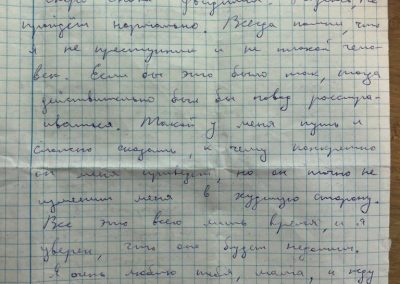 скоро снова увидимся,
пройдёт нормально. Всегда помни, что
я не преступник и не плохой чело-
век. Если бы это было так, тогда
действительно был бы повод расстра-
иваться. Такой у меня путь и
сложно сказать, к чему конкретно
он меня приведёт, но он точно не
изменит меня в худшую сторону.
Все это всего лишь время, и я
уверен, что оно будет недолгим.
Я очень люблю тебя, мама, и жду